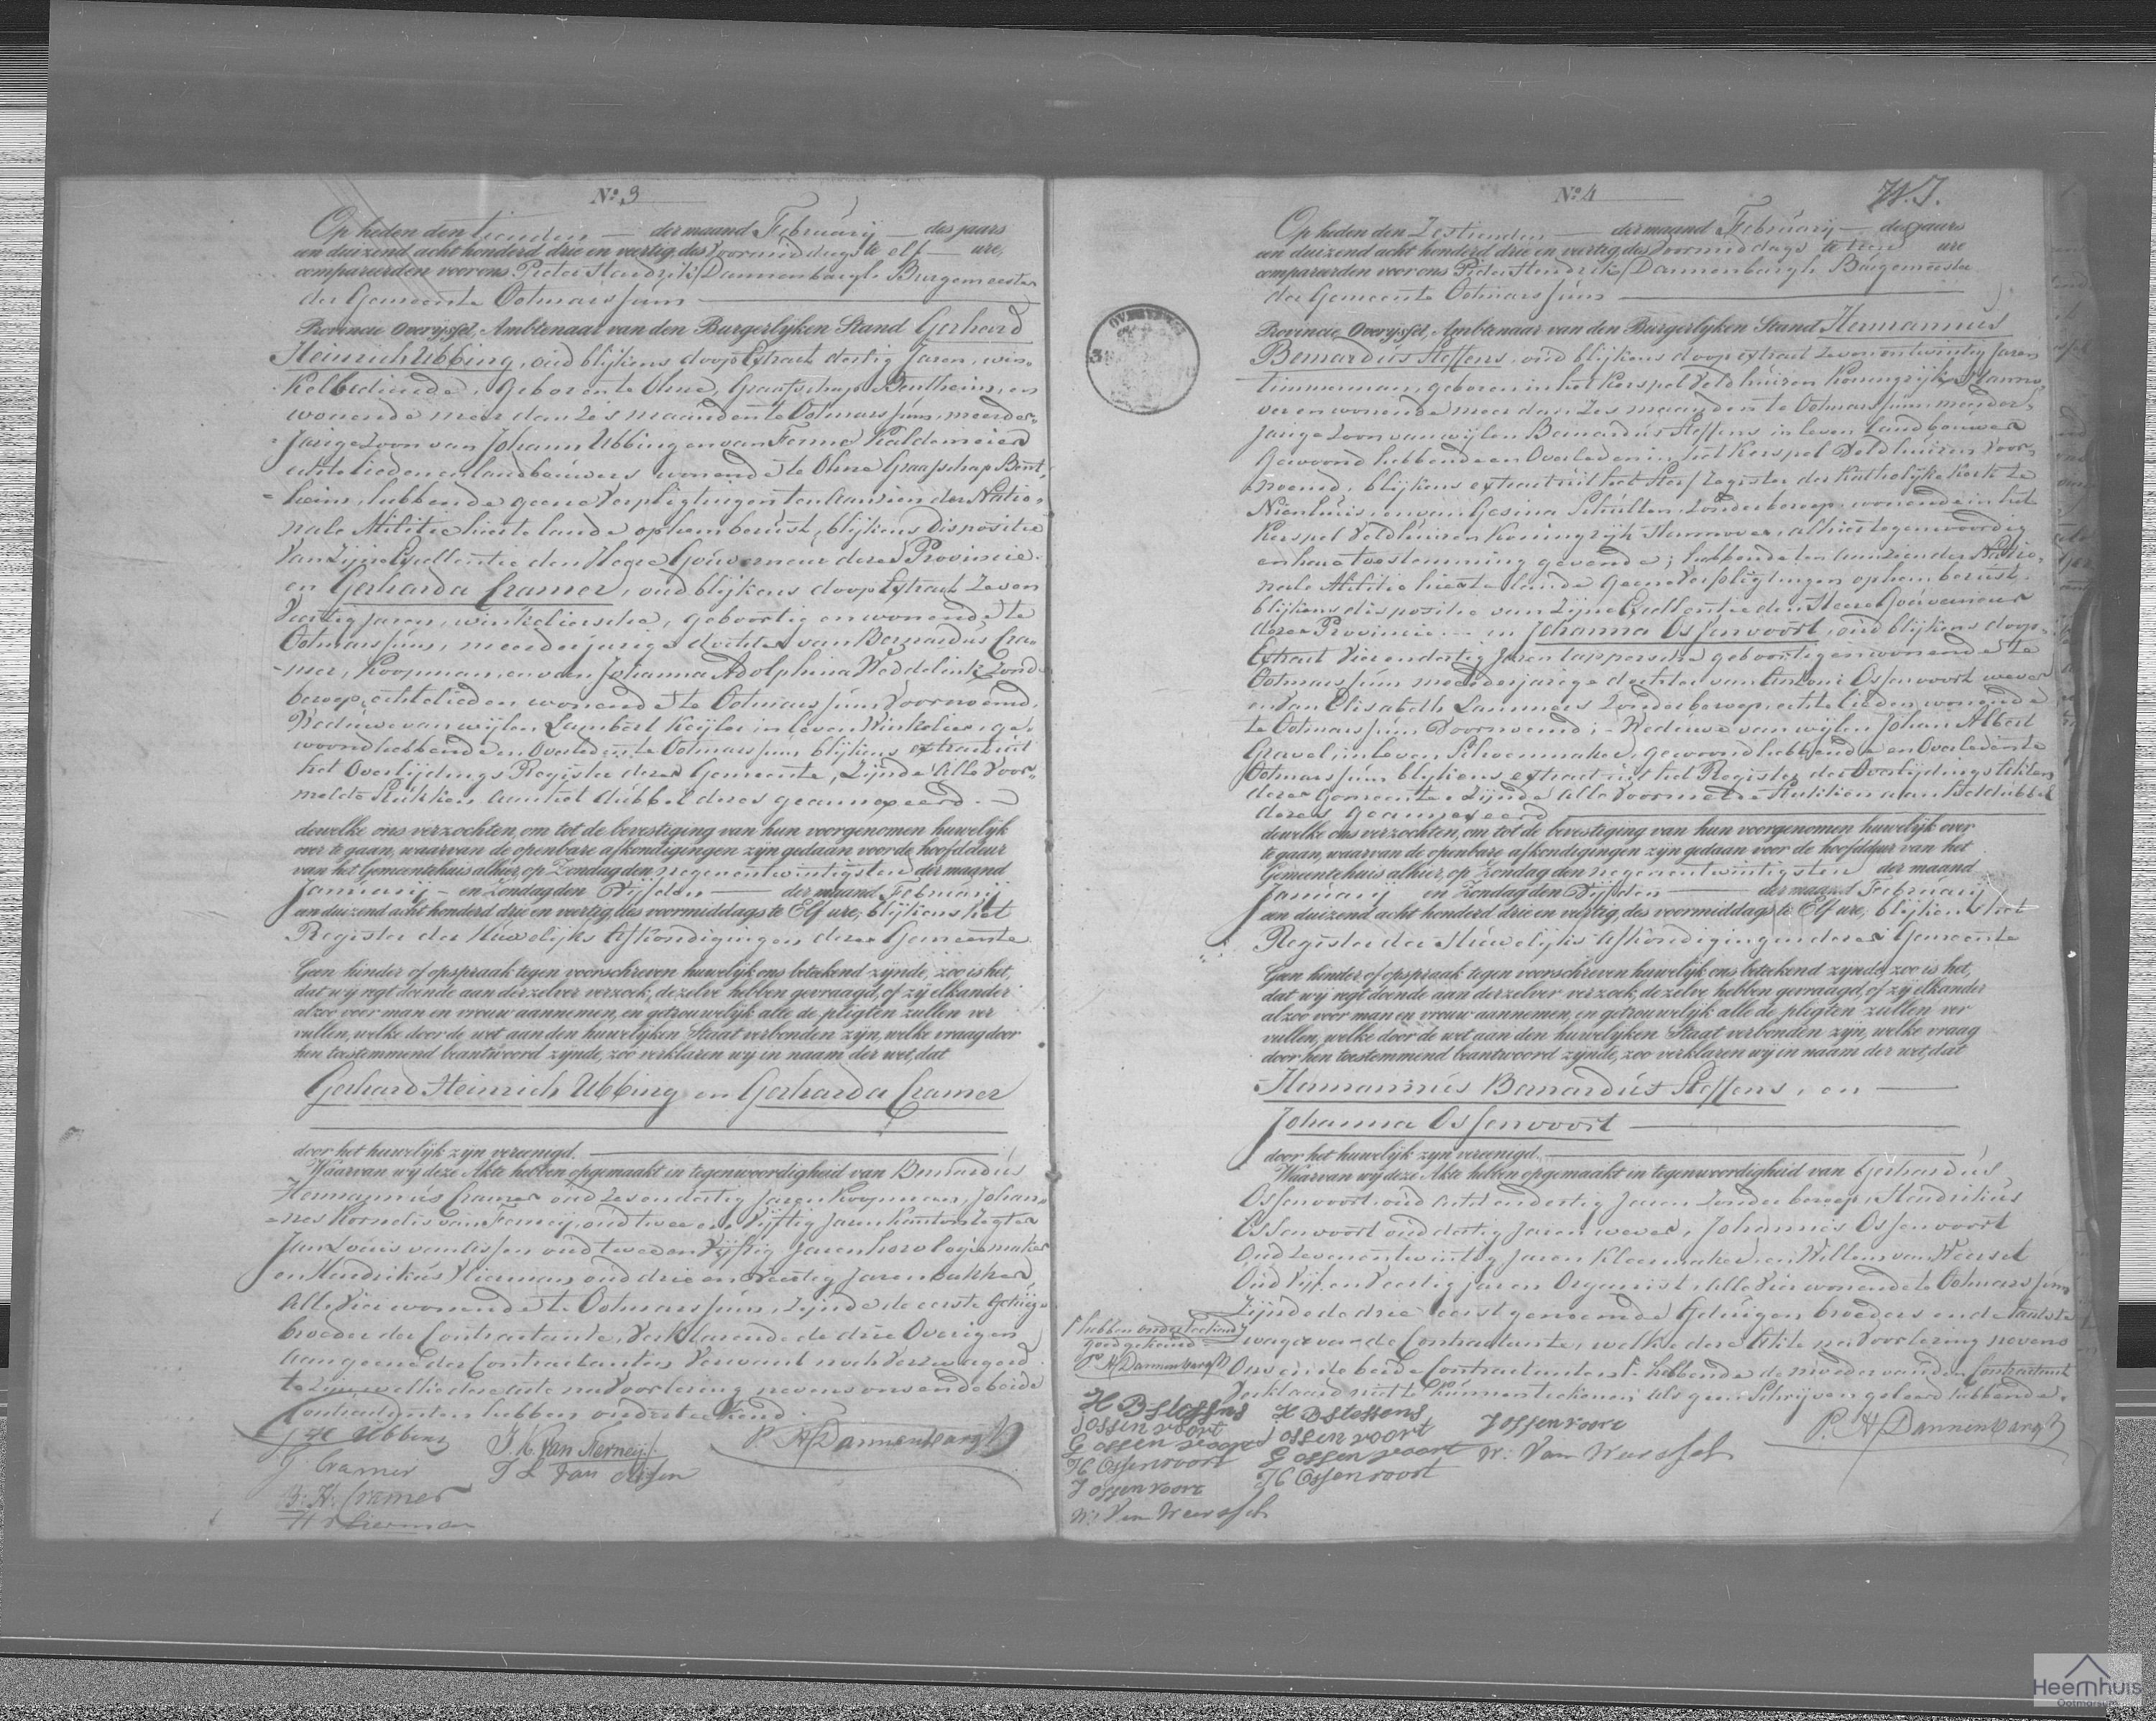 No. 3
Op heden den tienden der maand Februarij des jaars
een duizend acht honderd drie en veertig, des Voormiddags te elf ure,
compareerden voor ons Pieter Hendrik Dannenbargh Burgemeester
der Gemeente Ootmarssum
Provincie Overijssel, Ambtenaar van den Burgerlyken Stand Gerhard
Heinrich Ubbing, oud blijkens doop Extract dertig Jaren, win-
kelbediende, Geboren te Ohne, Graafschap Bentheim, en
wonende meer dan zes maanden te Ootmarssum, meerder-
Jarige Zoon van Johann Ubbing en van Fenne Kaldemeier
echtelieden en landbouwers wonende te Ohne Graafschap Bent-
heim, hebbende geene Verpligtingen ten aanzien der Natio-
nale Militie hier te lande op hem berust, blijkens Dispositie
van Zijne Excellentie den Heere Gouverneur dezer Provincie
en Gerharda Cramer, oud blijkens doop Extract Zeven
Veertig jaren, winkeliersche, geboortig en wonende te
Ootmarssum, meerderjarige dochter van Bernardus Cra-
mer, Koopman, en van Johanna Adolphina Weddelink Zonder
beroep, echtelieden wonende te Ootmarssum Voornoemd,
Weduwe van wijlen Lambert Keijler in leven Winkelier, ge-
woond hebbende en Overleden te Ootmarssum blijkens extract uit
het Overlijdings Register dezer Gemeente, Zijnde alle Voor-
melde Stukken aan het dubbel dezes geannexeerd.
dewelke ons verzochten, om tot de bevestiging van hun voorgenomen huwelijk
over te gaan, waarvan de openbare afkondigingen zijn gedaan voor de hoofddeur
van het Gemeentehuis alhier, op Zondag den negenentwintigsten der maand
Januarij en Zondag den Vijfden der maand Februarij
een duizend acht honderd drie en veertig, des voormiddags te Elf ure, blijkens het
Register der Huwelijks Afkondigingen dezer Gemeente
Geen hinder of opspraak tegen voorschreven huwelijk ons betekend zynde, zoo is het,
dat wij regt doende aan derzelver verzoek, dezelve hebben gevraagd, of zij elkander
alzoo voor man en vrouw aannemen, en getrouwelijk alle de pligten zullen ver
vullen, welke door de wet aan den huwelijken Staat verbonden zijn, welke vraag door
hen toestemmend beantwoord zynde, zoo verklaren wij in naam der wet, dat
Gerhard Heinrich Ubbing en Gerharda Cramer
door het huwelijk zijn vereenigd.
Waarvan wij deze Akte hebben opgemaakt in tegenwoordigheid van Bernardus
Hermannus Cramer oud zesendertig jaren Koopman, Johan-
nes Kornelis van Ferneij, oud twee en Vijftig Jaren Kantonregter
Jan Louis van Assen oud twee en Vijftig Jaren horologiemaker
en Hendrikus Vlierman oud drie en Veertig Jaren bakker,
Alle Vier wonende te Ootmarssum, Zijnde de eerste Getuige
broeder der Contractante, Verklarende de drie Overigen
aan geene der Contractanten Verwant noch Verzwagerd
te zijn, welke deze acte na Voorlezing nevens ons en de beide
Contractanten hebben onderteekend.
G H Ubbing
J. K. van Ferneij
P. H. Dannenbargh
G Cramer
J L van Assen
B. H. Cramer
H Vlierman
No. 4
Op heden den Zestienden der maand Februarij des jaars
een duizend acht honderd drie en veertig, des Voormiddags te tien ure
compareerden voor ons Pieter Hendrik Dannenbargh Burgemeester
der Gemeente Ootmarssum
Provincie Overijssel, Ambtenaar van den Burgerlyken Stand Hermannus
Bernardus Steffens, oud blijkens doop extract Zevenentwintig Jaren
timmerman, geboren in het Kerspel Veldhuizen Koningrijk Hanno-
ver en wonende meer dan Zes maanden te Ootmarssum, meerder-
jarige Zoon van wijlen Bernardus Steffens in leven landbouwer
Gewoond hebbende en Overleden in het Kerspel Veldhuizen Voor-
noemd, blijkens extract uit het Sterf register der Katholijke Kerk te
Nienhuis, en van Gesina Schulten, Zonder beroep, wonende in het
Kerspel Veldhuizen Koningrijk Hannover, alhier tegenwoordig
en hare toestemming gevende; hebbende ten aanzien der Natio-
nale Militie hier te lande geene Verpligtingen op hem berust
blijkens dispositie van Zijne Excellentie den Heere Gouverneur
dezer Provincie en Johanna Ossenvoort, oud blijkens doop-
Extract Vierendertig Jaren tappersche geboortig en wonende te
Ootmarssum meerderjarige dochter van Antoni Ossenvoort wever
en van Elisabeth Lammers Zonder beroep, echtelieden wonende
te Ootmarssum Voornoemd; Weduwe van wijlen Johan Albert
Gravel, in leven Schoenmaker, gewoond hebbende en Overleden te
Ootmarssum blijkens extract uit het Register der Overlijdings Akten
dezer Gemeente, Zijnde alle Voormelde Stukken aan het dubbel
dezes geannexeerd
dewelke ons verzochten, om tot de bevestiging van hun voorgenomen huwelijk over
te gaan, waarvan de openbare afkondigingen zijn gedaan voor de hoofddeur van het
Gemeentehuis alhier, op Zondag den negenentwintigsten der maand
Januarij en Zondag den Vijfden der maand Februarij
een duizend acht honderd drie en veertig, des voormiddags te Elf ure, blijkens het
Register der Huwelijks Afkondigingen dezer Gemeente
Geen hinder of opspraak tegen voorschreven huwelijk ons betekend zynde, zoo is het,
dat wij regt doende aan derzelver verzoek, dezelve hebben gevraagd, of zij elkander
alzoo voor man en vrouw aannemen, en getrouwelijk alle de pligten zullen ver
vullen, welke door de wet aan den huwelijken Staat verbonden zijn, welke vraag
door hen toestemmend beantwoord zijnde, zoo verklaren wij in naam der wet, dat
Hermannus Bernardus Steffens, en
Johanna Ossenvoort
door het huwelijk zijn vereenigd.
Waarvan wij deze Akte hebben opgemaakt in tegenwoordigheid van Gerhardus
Ossenvoort, oud achtendertig Jaren Zonder beroep, Hendrikus
Ossenvoort oud dertig Jaren wever, Johannes Ossenvoort
Oud Zevenentwintig Jaren Kleermaker, en Willem van Weersel
Oud Vijf en Veertig jaren Organist, alle Vier wonende te Ootmarssum
Zijnde de drie eerstgenoemde Getuigen broeders en de laatste
zwager van de Contractante, welke deze Akte na Voorlezing nevens
Ons en de beide Contractanten hebbende de moeder van den Contractant
Verklaard niet te kunnen teekenen als geen Schrijven geleerd hebbende.
hebben onderteekend
goedgekeurd
P. H. Dannenbargh
H B Steffens
J ossenvoort
G ossenvoort
H Ossenvoort
J ossenvoort
W. Van Weersel
H B Steffens
J ossenvoort
G ossenvoort
H Ossenvoort
J ossenvoort
W. Van Weersel
P. H. Dannenbargh
Heemhuis
Ootmarsum